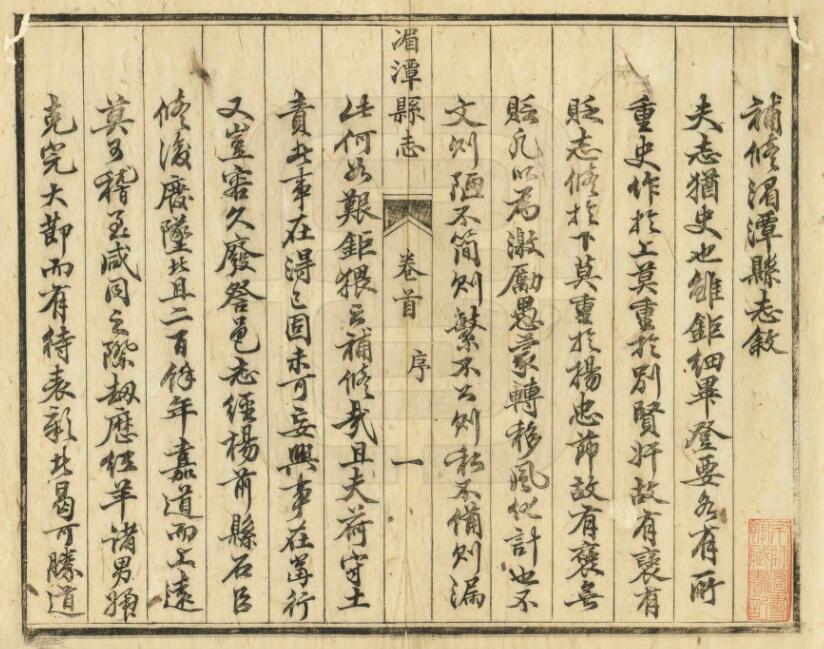 補修湄潭縣志敘
夫志猶史也雖鉅細畢登要各有所
重史作於上莫重於別賢奸故有褒有
貶志修於下莫重於揚忠節故有褒無
貶凡以為激勵愚蒙轉移風化計也不
文則陋不簡則繁不公則私不備則漏
湄潭縣志 卷首 序 一
此何如艱鉅猥云補修哉且夫荷守土
責此事在得已固未可妄興事在當行
又豈容久廢邑志經楊前縣石臣
修後廢墜此且二百餘年嘉道而上遠
莫可稽至咸同之際劫歷紅羊諸男婦
克完大節而有待表彰者曷可勝道